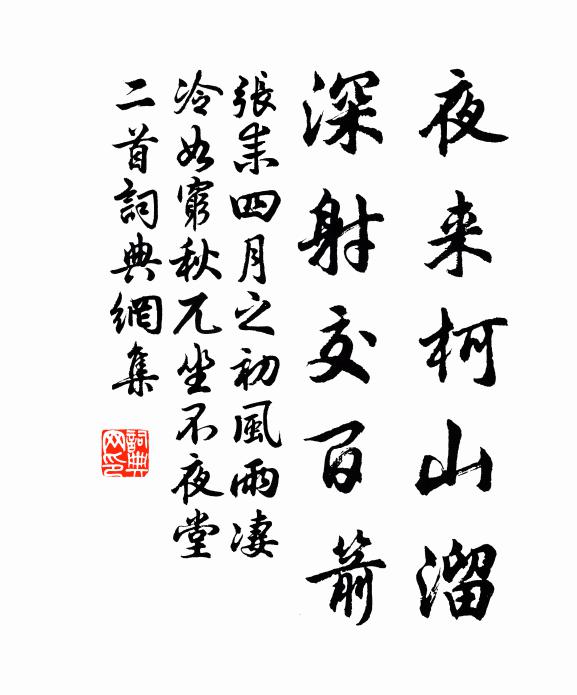 夜来柯山溜
深射交百箭
張耒四月之初風雨凄
冷如窮秋兀坐不夜堂
二首詞典網集
詞典網印